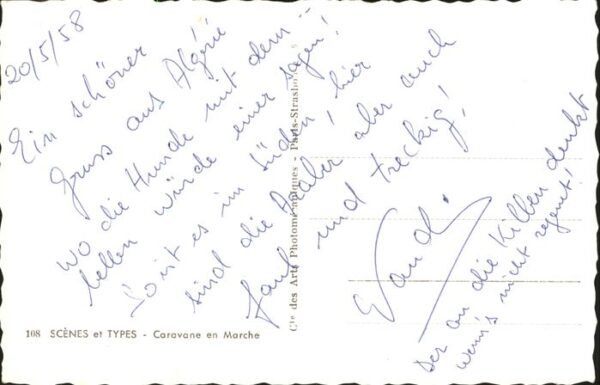 20/5/58
Ein schöner
Gruss aus Algérie
wo die Hunde mit dem --
bellen würde einer sagen!
So ist es im Süden, hier
sind die Araber aber auch
faul und treckig!
der an die Kilben denkt
wenn's nicht regnet!
108 SCÈNES et TYPES - Caravane en Marche
Cie des Arts Photomécaniques - Paris-Strasbo